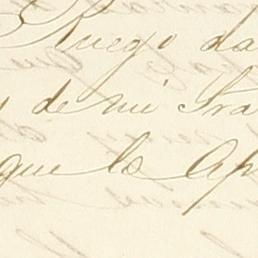 Ruego da
s de mi Tra
que lo Ap